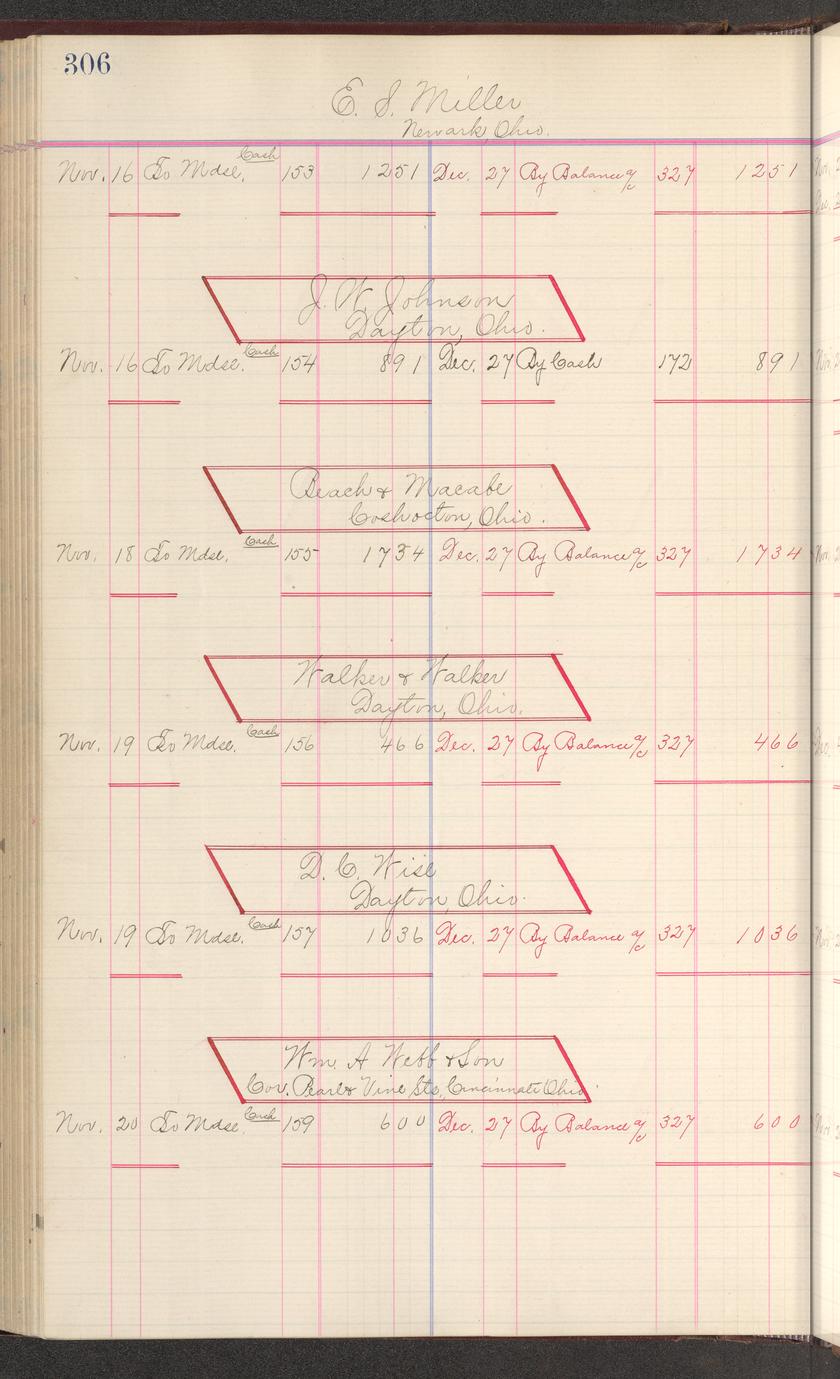 306
E. S. Miller
Newark, Ohio.
Nov. 16 To Mdse. Cash 153 1251 Dec. 27 By Balance a/c 327 1251
J. W. Johnson
Dayton, Ohio.
Nov. 16 To Mdse. Cash 154 891 Dec. 27 By Cash 172 891
Beach & Macabe
Coshocton, Ohio.
Nov. 18 To Mdse. Cash 155 1734 Dec. 27 By Balance a/c 327 1734
Walker & Walker
Dayton, Ohio.
Nov. 19 To Mdse. Cash 156 466 Dec. 27 By Balance a/c 327 466
D. C. Wise
Dayton, Ohio.
Nov. 19 To Mdse. Cash 157 1036 Dec. 27 By Balance a/c 327 1036
Wm. A Webb & Son
Cor. Pearl & Vine Sts, Cincinnati Ohio.
Nov. 20 To Mdse. Cash 159 600 Dec. 27 By Balance a/c 327 600